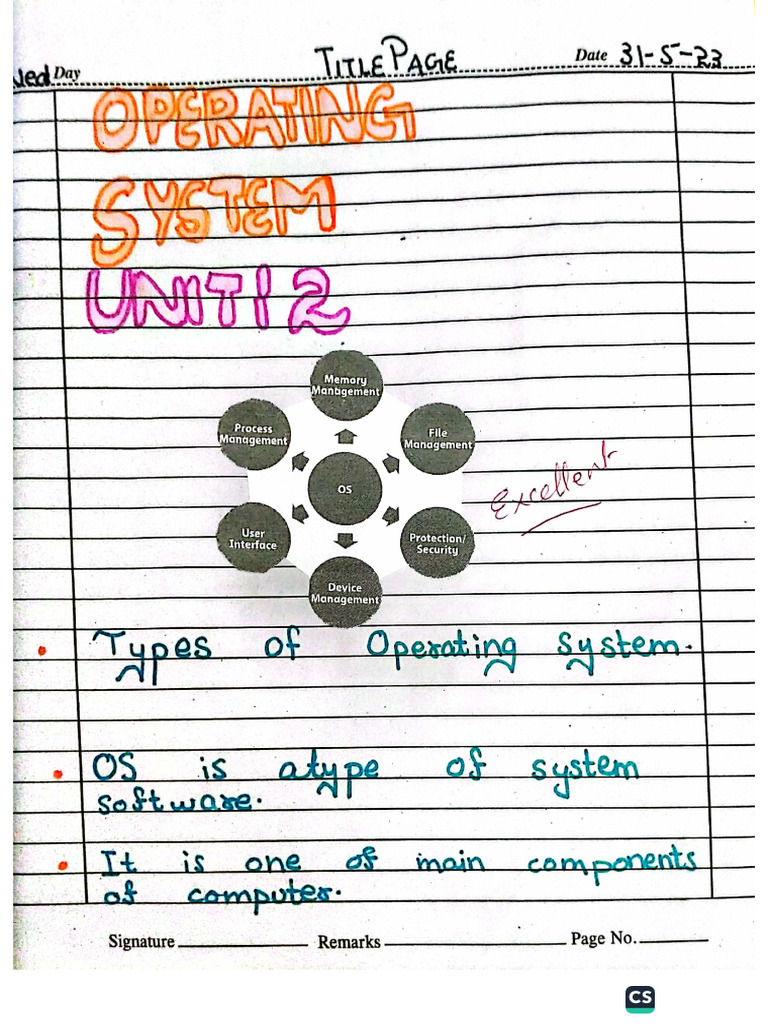 Wed Day TITLE PAGE Date 31-5-23
OPERATING
SYSTEM
UNIT 2
Memory
Management
Process
Management
File
Management
OS
Excellent
User
Interface
Protection/
Security
Device
Management
• Types of Operating system.
• OS is atype of system
software.
• It is one of main components
of computer.
Signature Remarks Page No.
CS